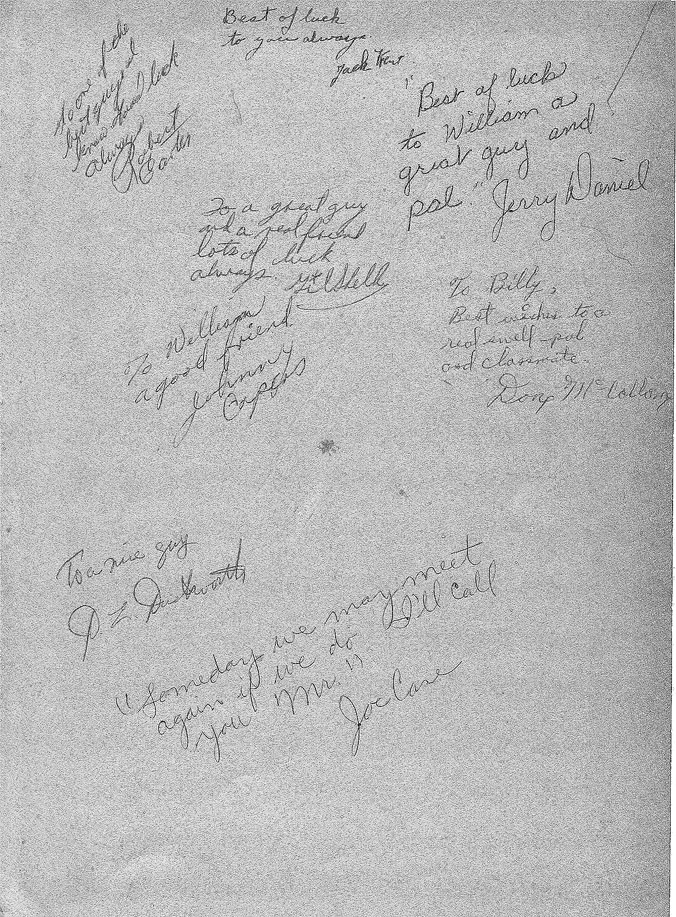 Best of luck
to you always.
Jack
To one of the
best guys I
know Good luck
always
Robert
Carter
"Best of luck
to William a
great guy and
pal." Jerry Daniel
To a great guy
and a real friend
lots of luck
always.
To William
a good friend
Johnny
Capers
To Billy,
Best wishes to a
real swell pal
and classmate.
Don
To a nice guy
D. L. Duckworth
"Someday we may meet
again if we do I'll call
you "Mr."
Joe Cave